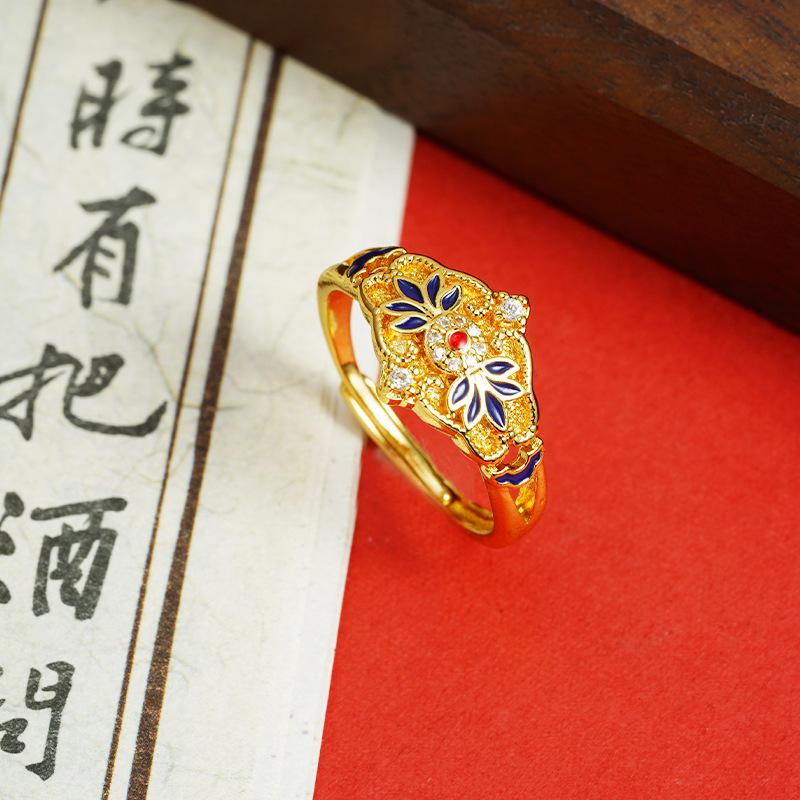 時有把酒問